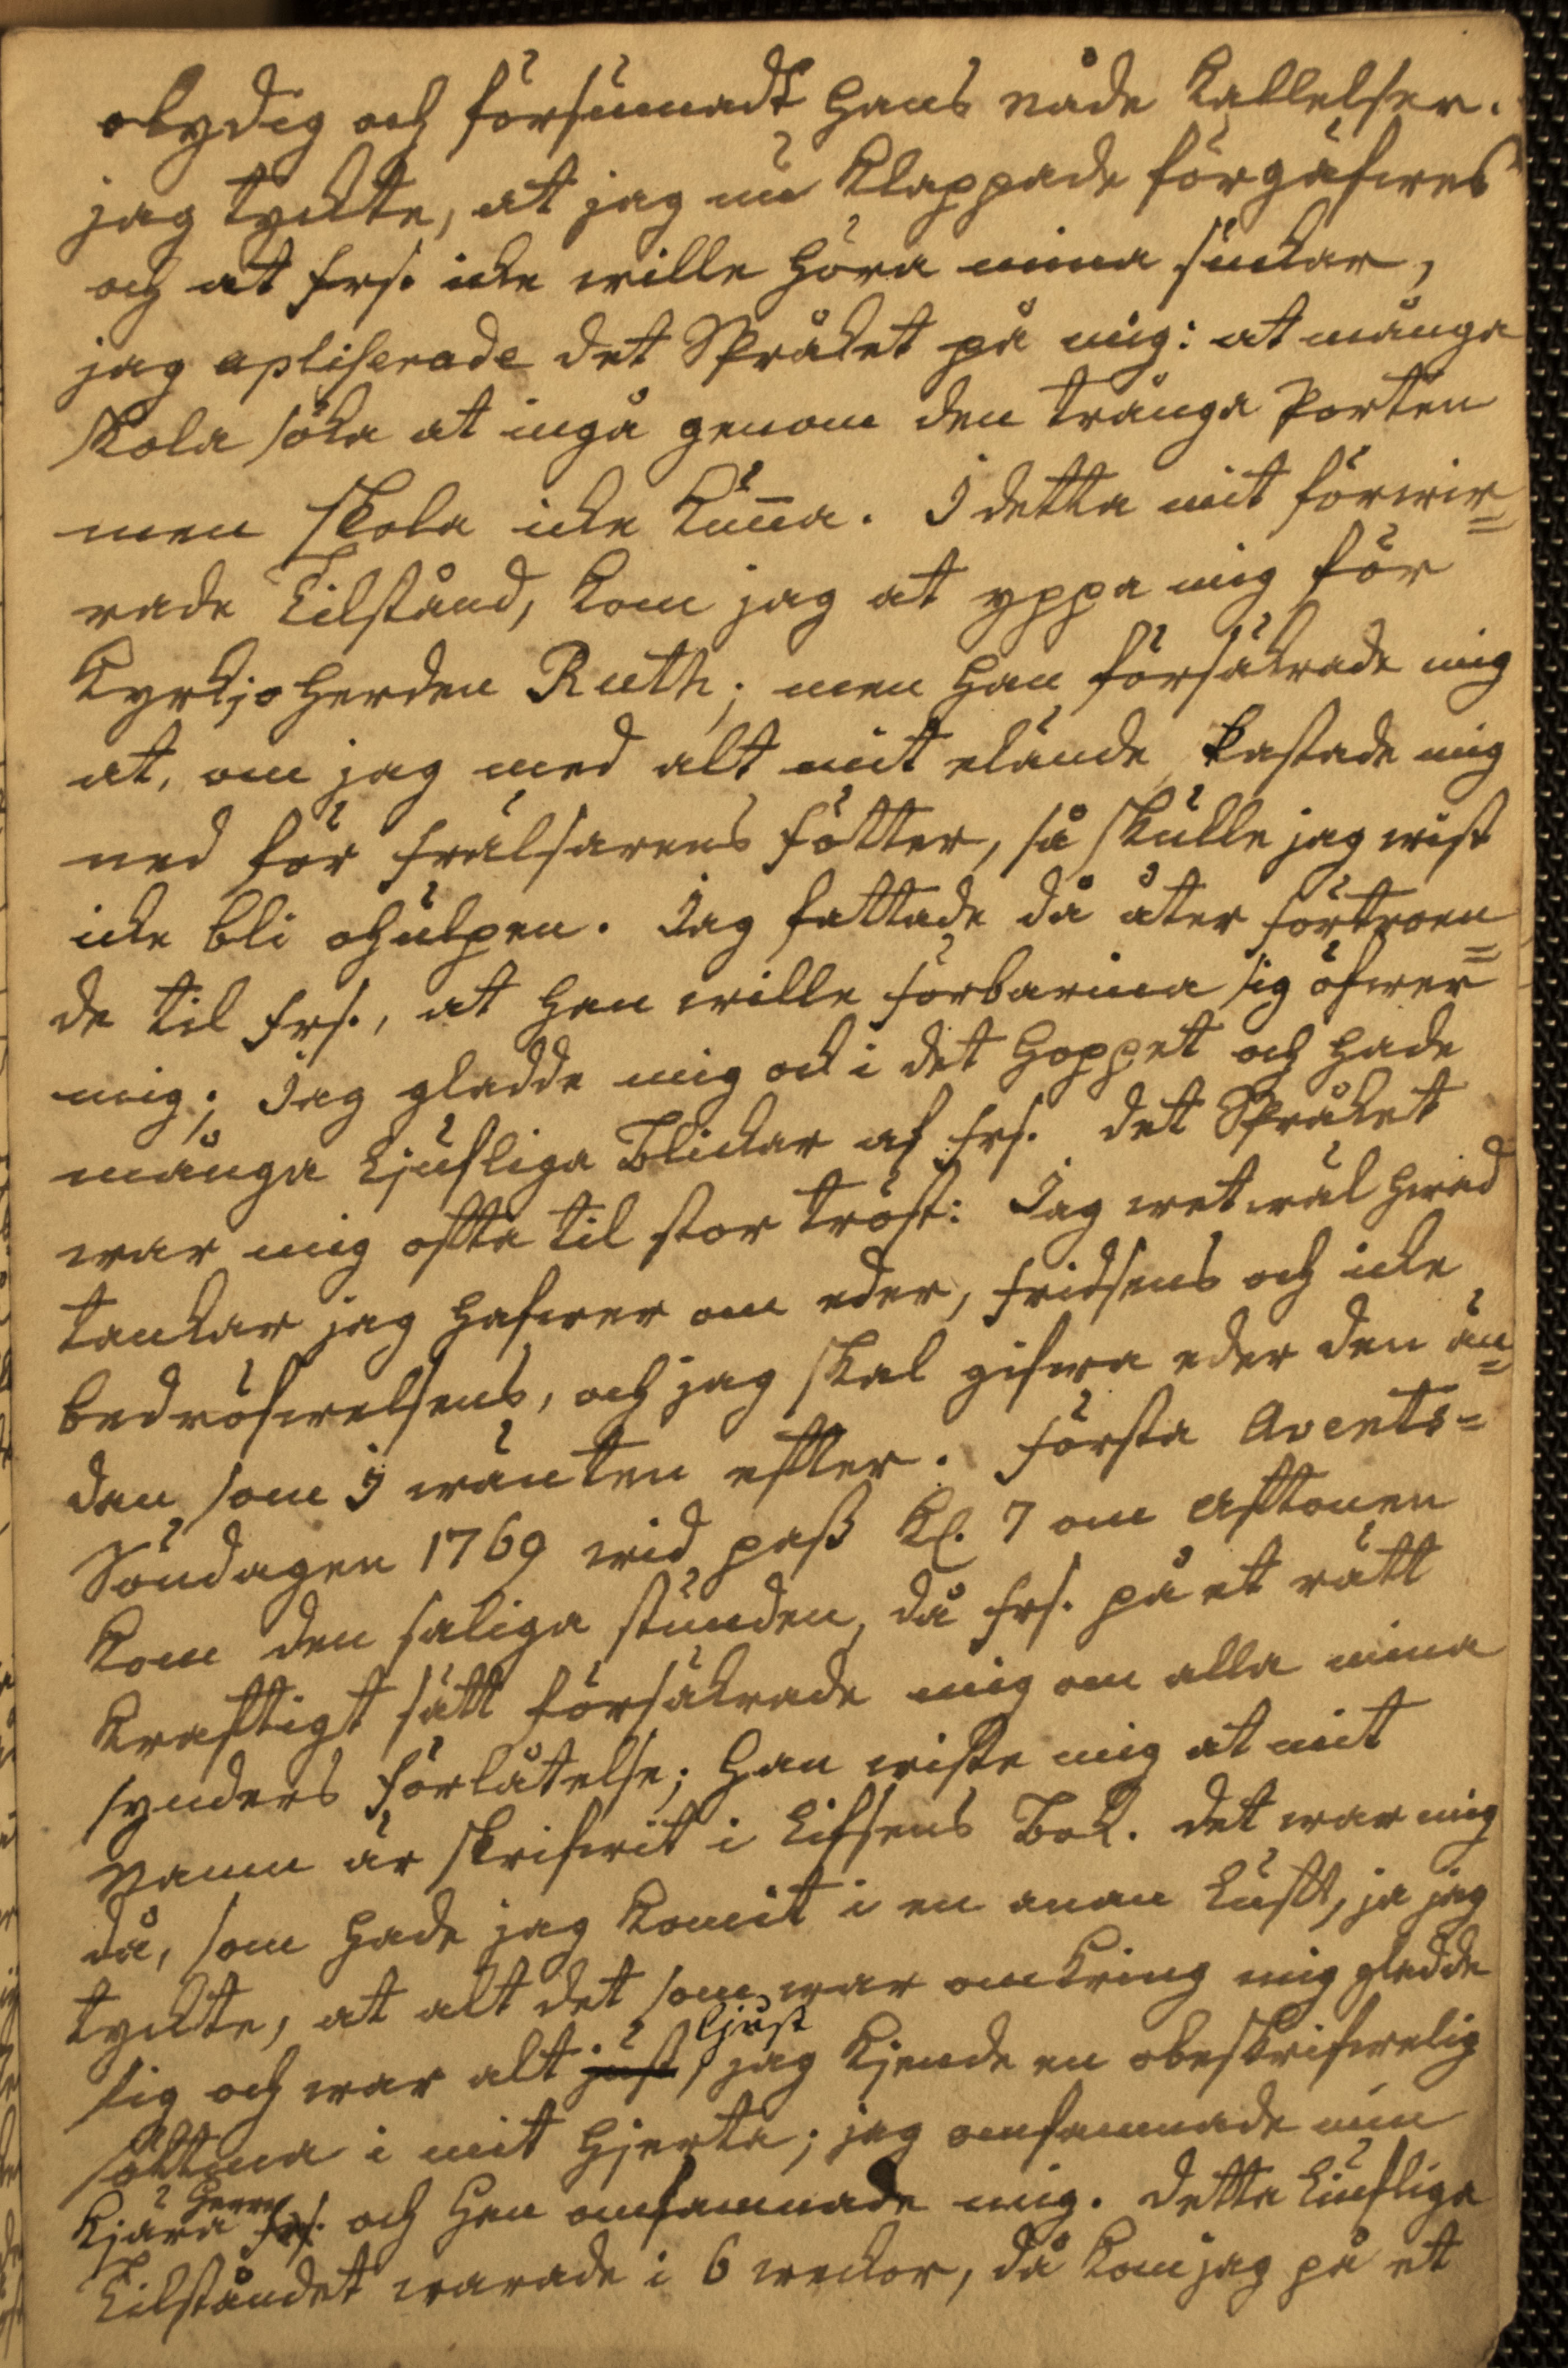 olydig och försummadt Hans nåde Kallelser.
jag tyckte, at jag nu Klappade förgäfwes
och at Frs. icke wille höra mina suckar,
jag apliserade det Språket på mig: at många
skola söka at ingå genom den trånga Porten
men skola icke kuña. I detta mit förwir=
rade Tilstånd, kom jag at yppa mig för
Kyrkjoherden Ruth; men han försäkrade mig
at, om jag med alt mit elände kastade mig
ned för Frälsarens fötter, så skulle jag wist
icke bli ohulpen. Jag fattade då åter förtroen=
de til Frs., at Han wille förbarma sig öfwer
mig; Jag gladde mig ock i det Hoppet och hade
många Ljufliga Blickar af Frs. Det Språket
war mig ofta til stor tröst: Jag wet wäl hwad
tanckar jag hafwer om eder, Fridsens och icke
bedröfwelsens, och jag skal gifwa eder den än=
dan som I wänten efter. Första Avents=
Söndagen 1769 wid paß Kl. 7 om Aftonen
kom den saliga stunden, då Frs. på et rätt
kraftigt sätt försäkrade mig om alla mina
synders förlåtelse; Han wiste mig at mit
Namn är skrifwit i Lifsens Bok. Det war mig
då, som hade jag komit i en anan Luft, ja jag
tyckte, at alt det som war omkring mig gladde
sig och war alt just ljust, jag kjende en obeskrifwelig
söttma i mit Hjerta; jag omfamnade min
Kjära Frs. Herre och Han omfamnade mig. Detta Liufliga
Tilståndet warade i 6 weckor, då kom jag på et